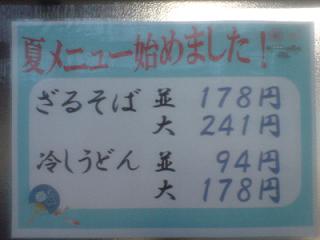 夏メニュー始めました!
ざるそば 並 178円
大 241円
冷しうどん 並 94円
大 178円